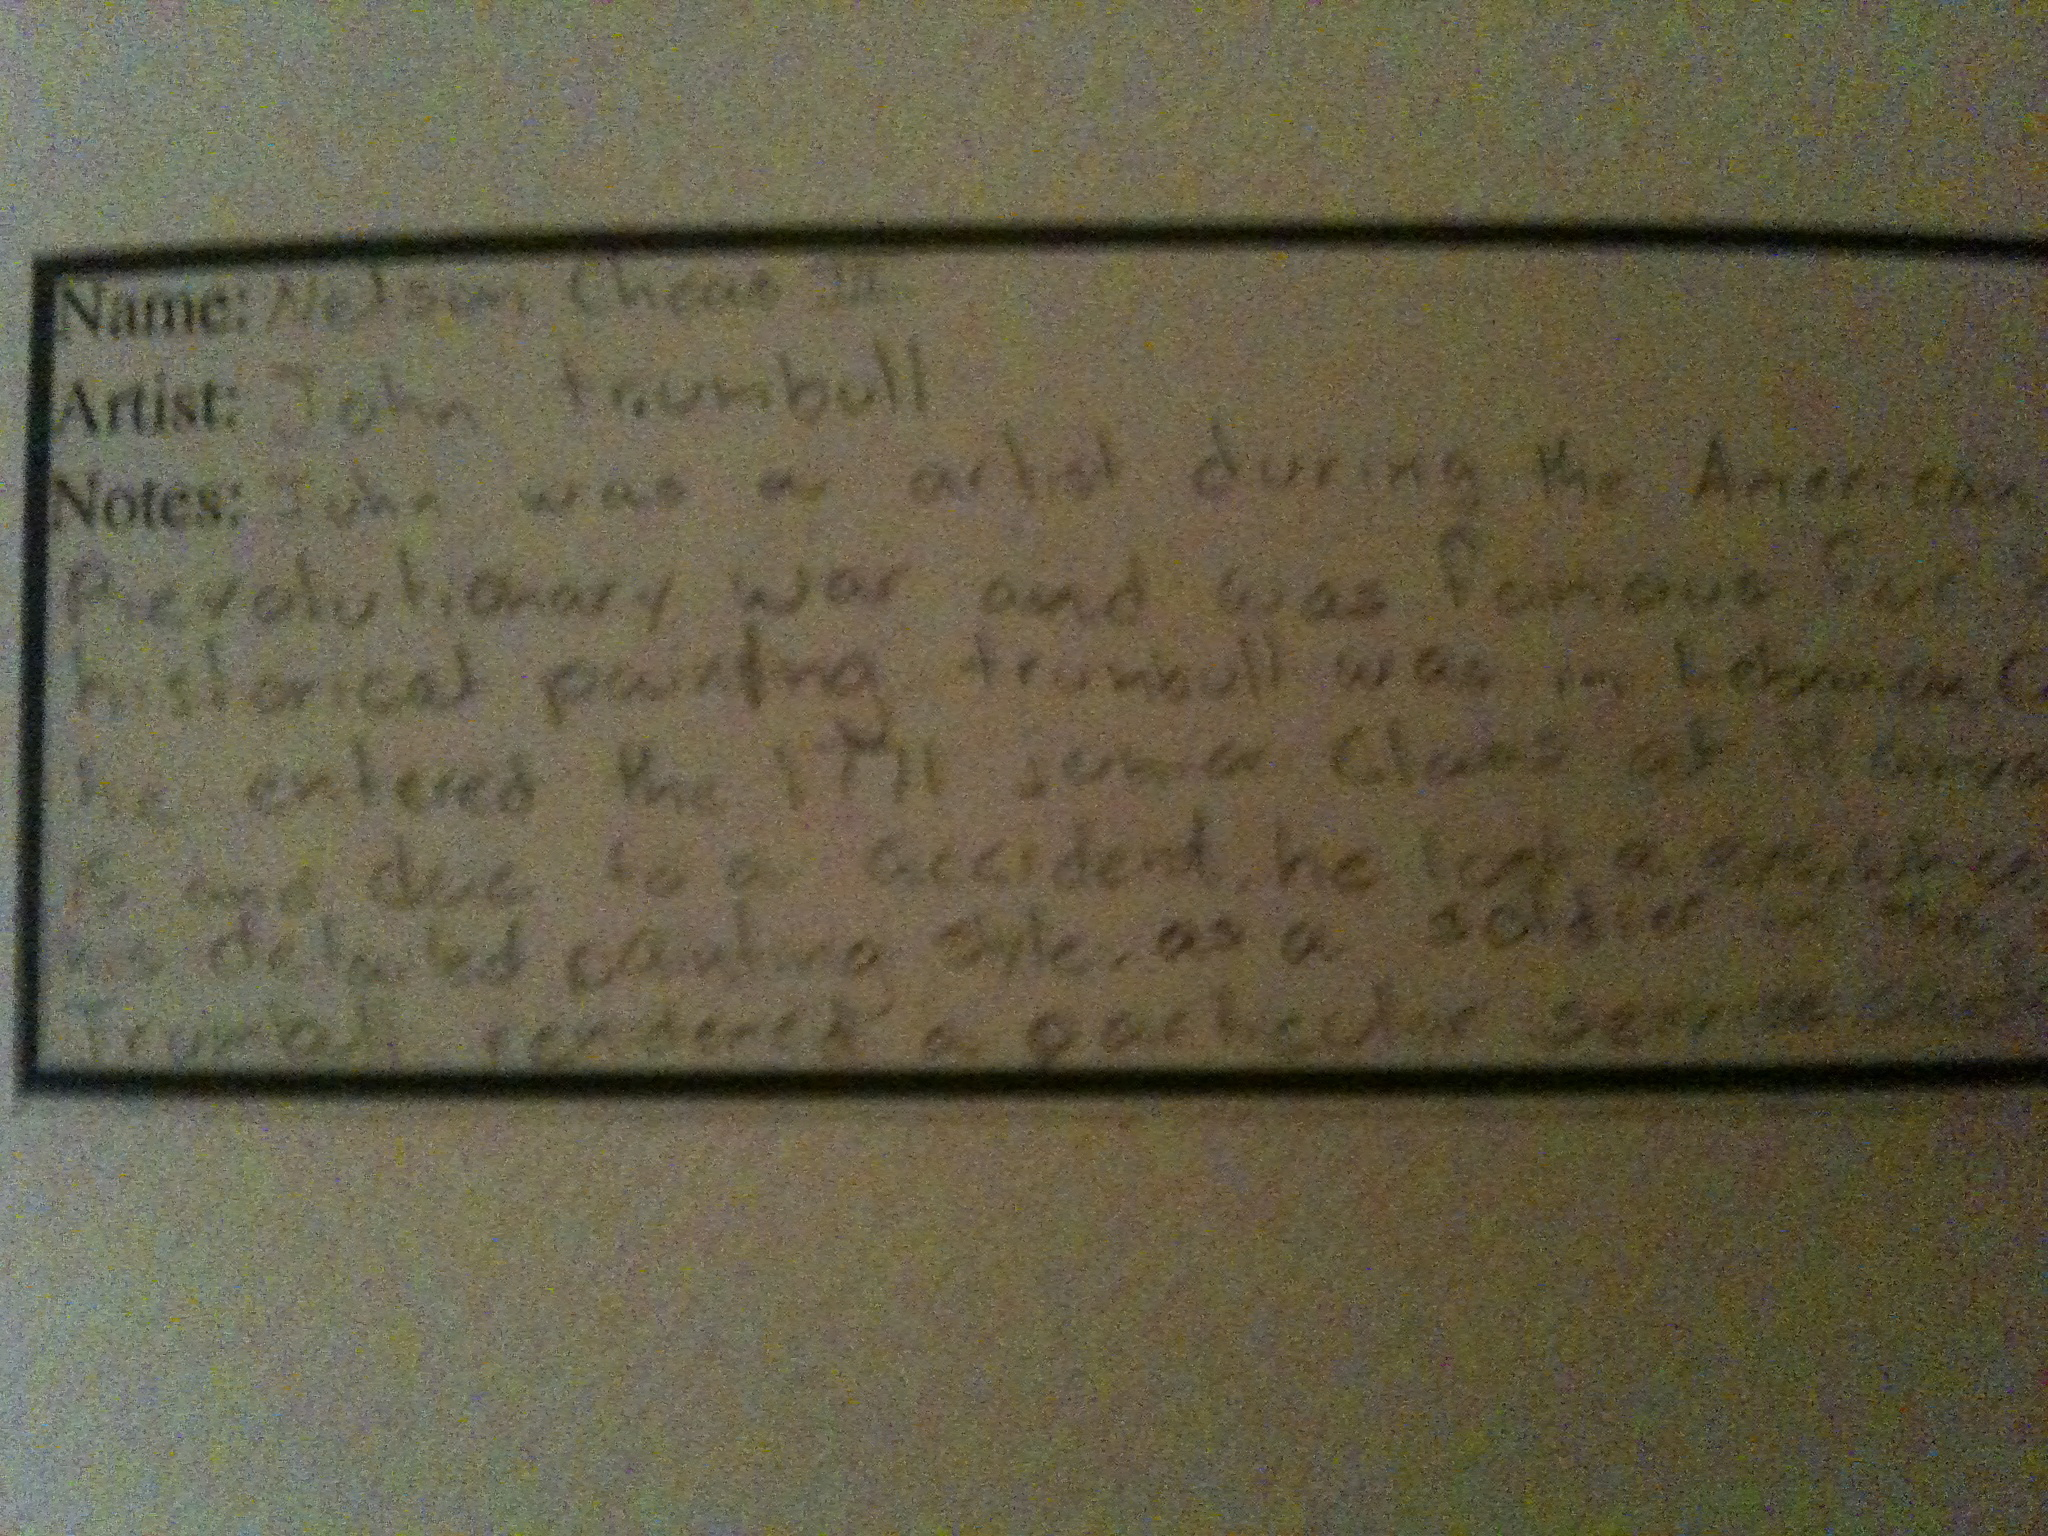 Name: Nelson Cheas III
Artist: John trumbull
Notes: John was a artist during the American
Revolutionary war and was famous for
historical painting trumbull was in
he entered the 1771 junior Class at
15 and due to a accident, he
his detailed painting style. as a soldier in the
a service